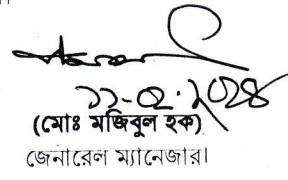 ১১-০২-২০২৪
(মোঃ মজিবুল হক)
জেনারেল ম্যানেজার।